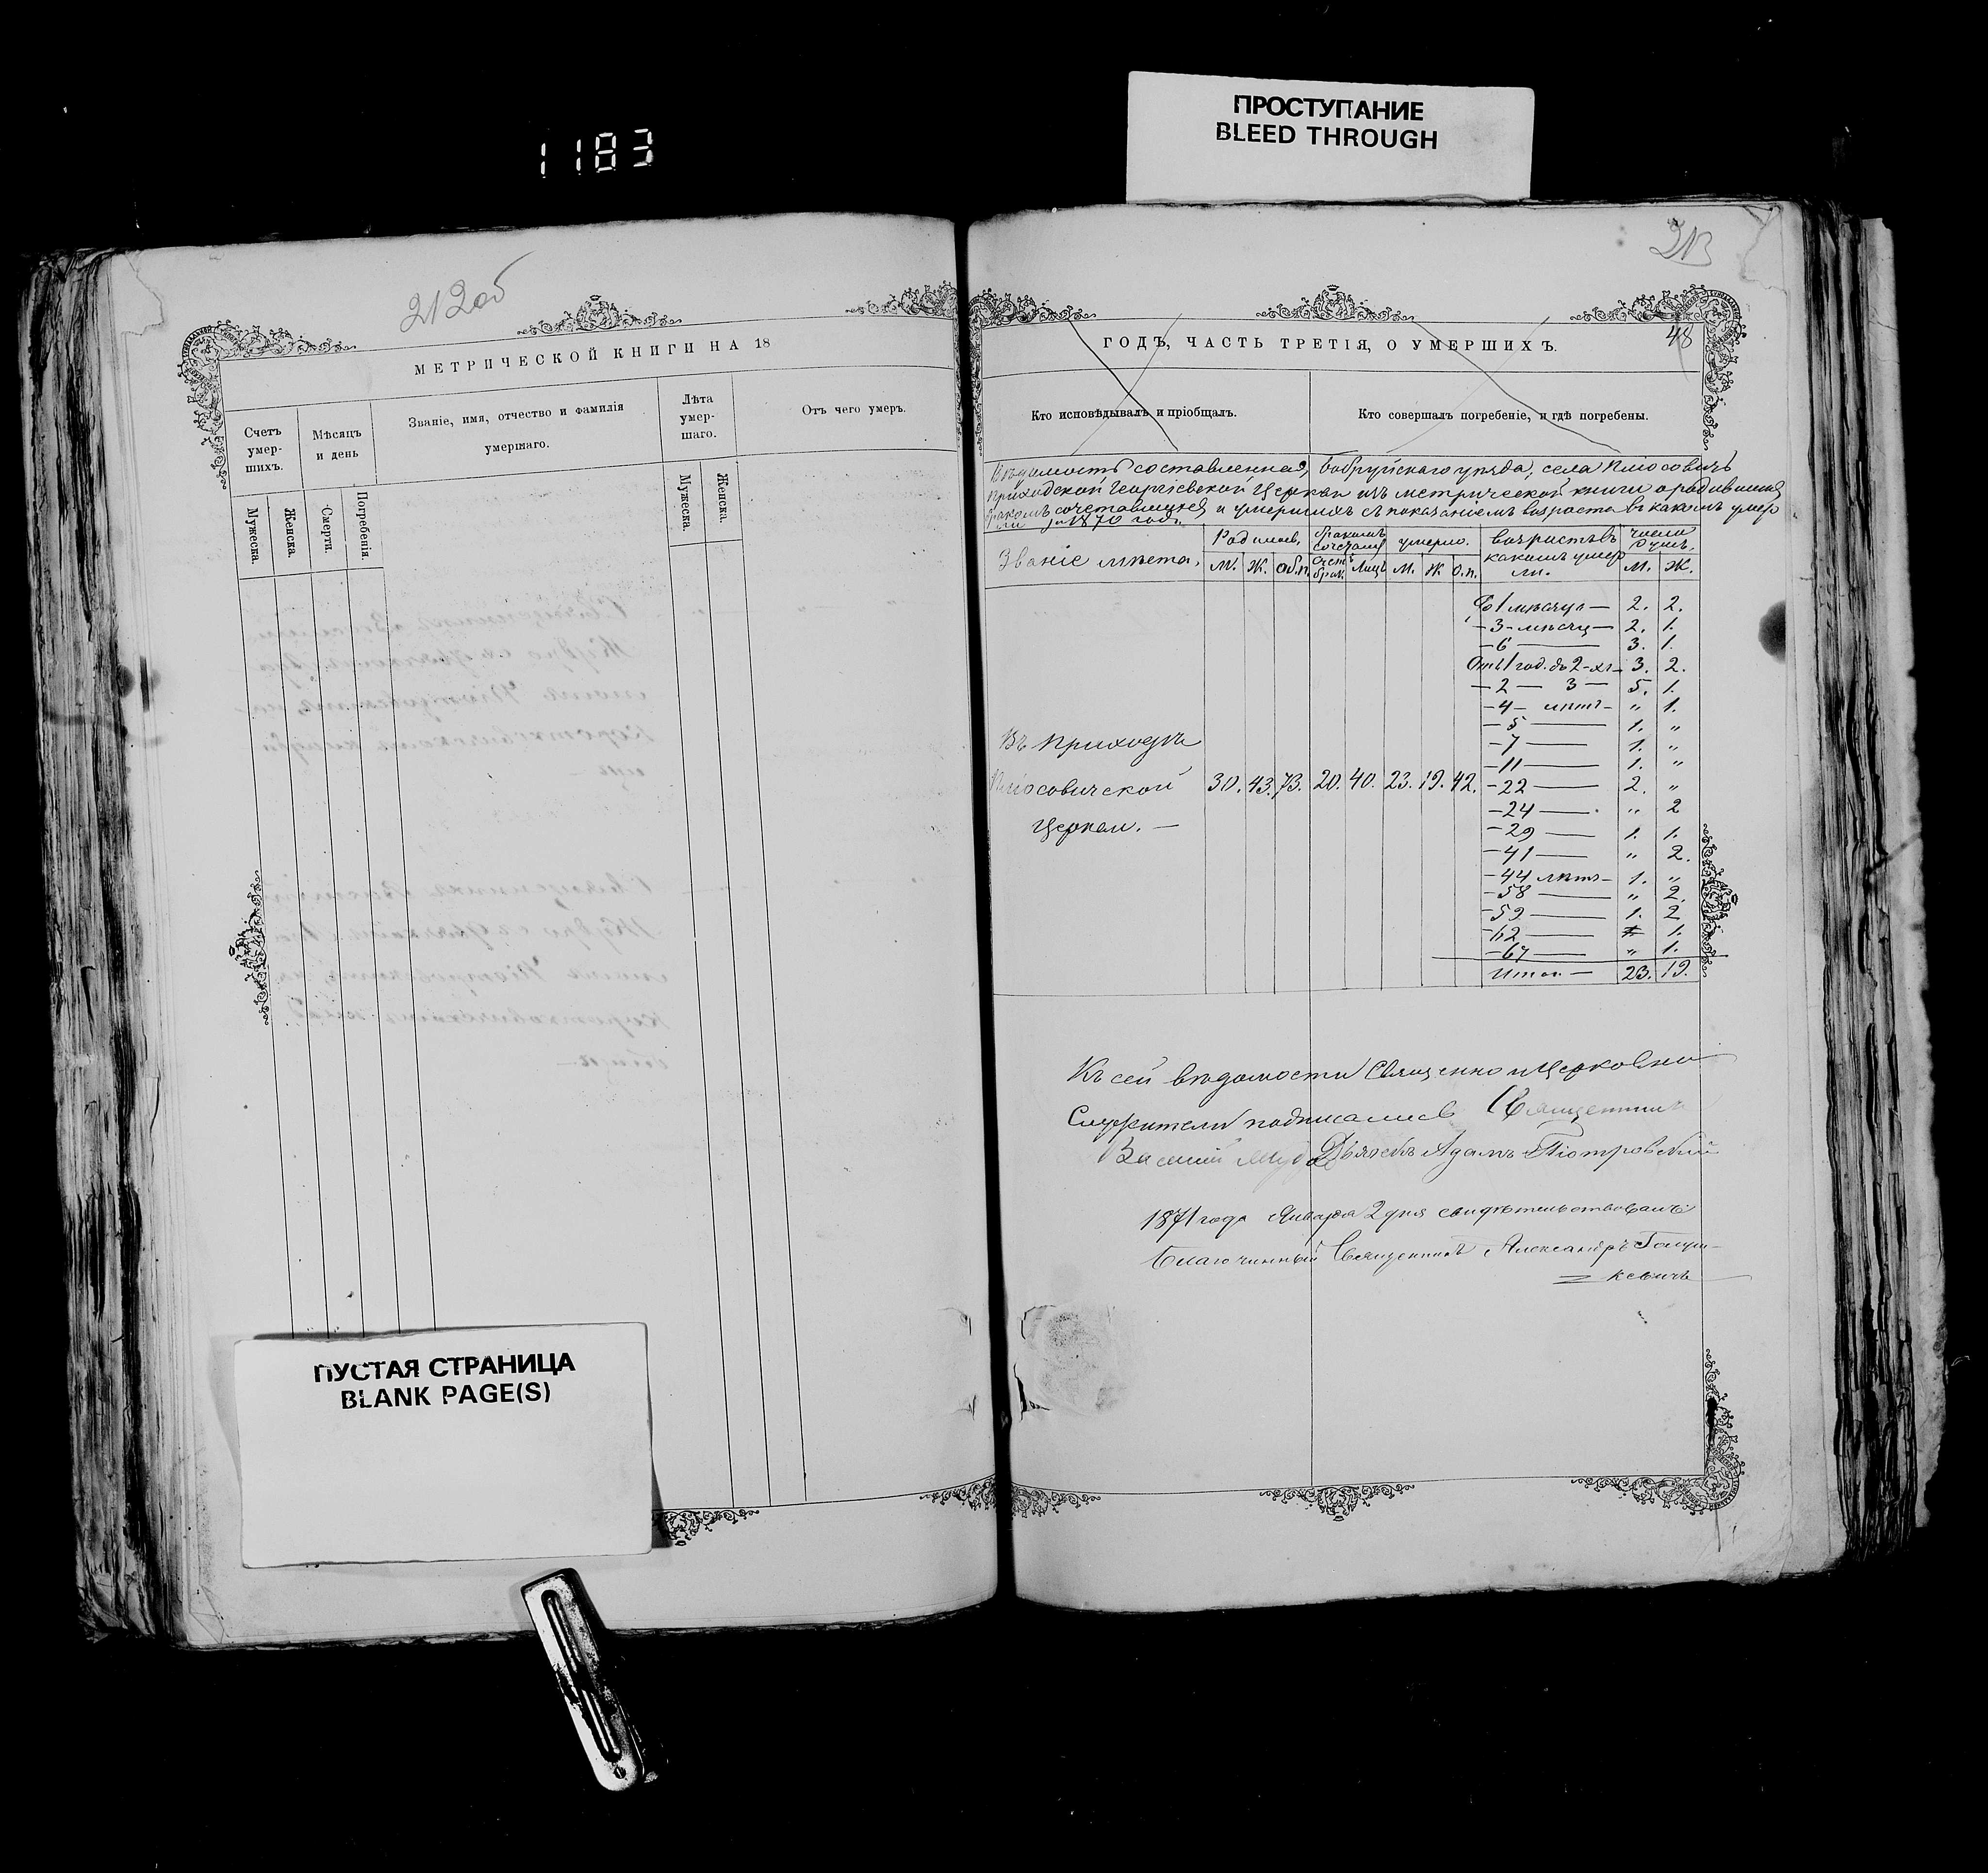 1183
ПРОСТУПАНИЕ
BLEED THROUGH
212об
213
МЕТРИЧЕСКОЙ КНИГИ НА 18
Счетъ умер-шихъ.
Мѣсяцъ и день
Званіе, имя, отчество и фамилія умершаго.
Лѣта умер-шаго.
Отъ чего умеръ.
Мужеска.
Женска.
Смерти.
Погребенія.
Мужеска.
Женска.
ГОДЪ, ЧАСТЬ ТРЕТІЯ, О УМЕРШИХЪ.
48
Кто исповѣдывалъ и пріобщалъ.
Кто совершалъ погребеніе, и гдѣ погребены.
Вѣдомость составленная, Бобруйскаго уѣзда, села
приходской Георгіевской Церкви изъ метрической книги о родившихся
бракомъ сочетавшихся и умершихъ съ показаніемъ возраста въ какомъ умер
ли 1870 годъ.
Званіе мѣста.
Родилось,
бракомъ сочетал
умерло.
возрастъ въ какомъ умер ли.
число душъ.
М. Ж. Об.п.
Счет брак. Лицъ
М. Ж О.п.
М. Ж.
До 1 мѣсяца — 2. 2.
— 3 — мѣсяц — 2. 1.
— 6 — 3. 1.
Отъ 1 год. до 2-хъ — 3. 2.
— 2 — 3 — 5. 1.
— 4 — лѣтъ — " 1.
— 5 — 1. "
— 7 — 1. "
— 11 — 1. "
Въ приходѣ
церкви. —
30. 43. 73. 20. 40. 23. 19. 42.
— 22 — 2. "
— 24 — " 2
— 29 — 1. 1.
— 41 — " 2.
— 44 лѣтъ — 1. "
— 58 — " 2.
— 59 — 1. 2
— 62 — 1.
— 67 — " 1.
Итого — 23. 19.
Къ сей вѣдомости Священно и Церковно
Служители подписались Священникъ
Василій Дьячекъ Адамъ Піотровскій
1871 года Января 2 дня свидѣтельствовалъ
Благочинный Священникъ Александръ
кевичъ
ПУСТАЯ СТРАНИЦА
BLANK PAGE(S)